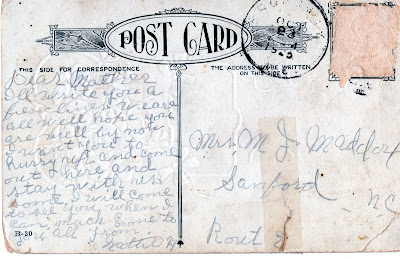 POST CARD
THIS SIDE FOR CORRESPONDENCE
THE ADDRESS TO BE WRITTEN
ON THIS SIDE
Dear Mother
I'll write you a
few lines we are
all well hope you
are well by now
I want you to
hurry up and come
out here and
stay with us
some, I will come
to see you when I
can, much love to
you all from
Hattie
Mrs. M J Maddox
Sanford
N.C.
Rout 2
B-20